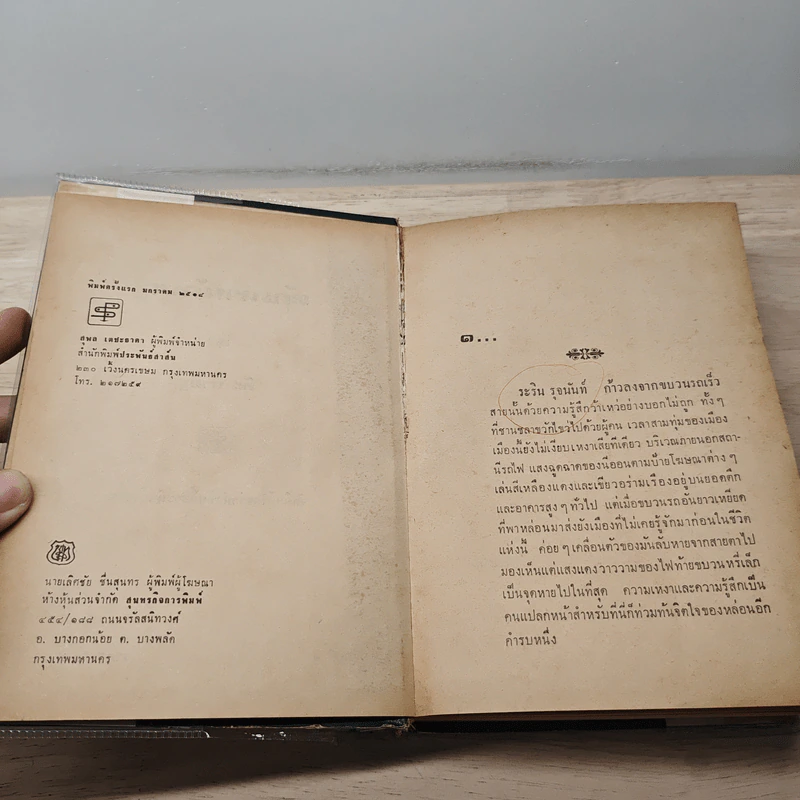 พิมพ์ครั้งแรก มกราคม ๒๕๑๔
สุพล เตชะธาดา ผู้พิมพ์จำหน่าย
สำนักพิมพ์ประพันธ์สาส์น
๒๓๐ เวิ้งนครเขษม กรุงเทพมหานคร
โทร. ๒๑๗๒๕๙
นายเลิศชัย ชื่นสุนทร ผู้พิมพ์ผู้โฆษณา
ห้างหุ้นส่วนจำกัด สุนทรกิจการพิมพ์
๔๕๔/๑๘๘ ถนนจรัลสนิทวงศ์
อ. บางกอกน้อย ต. บางพลัด
กรุงเทพมหานคร
๑...
ระริน รุจนันท์ ก้าวลงจากขบวนรถเร็ว
สายนั้นด้วยความรู้สึกว้าเหว่อย่างบอกไม่ถูก ทั้งๆ
ที่ชานชลาขวักไขว่ไปด้วยผู้คน เวลาสามทุ่มของเมือง
เมืองนี้ยังไม่เงียบเหงาเสียทีเดียว บริเวณภายนอกสถา-
นีรถไฟ แสงฉูดฉาดของนีออนตามป้ายโฆษณาต่างๆ
เล่นสีเหลืองแดงและเขียวอร่ามเรืองอยู่บนยอดตึก
และอาคารสูงๆ ทั่วไป แต่เมื่อขบวนรถอันยาวเหยียด
ที่พาหล่อนมาส่งยังเมืองที่ไม่เคยรู้จักมาก่อนในชีวิต
แห่งนี้ ค่อยๆ เคลื่อนตัวของมันลับหายจากสายตาไป
มองเห็นแต่แสงแดงวาววามของไฟท้ายขบวน หรี่เล็ก
เป็นจุดหายไปในที่สุด ความเหงาและความรู้สึกเป็น
คนแปลกหน้าสำหรับที่นี่ก็ท่วมทันจิตใจของหล่อนอีก
คำรบหนึ่ง